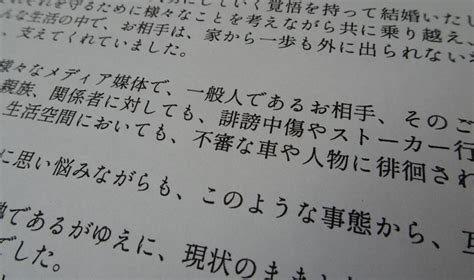 れぞれを守るために様々なことを考えながら共に乗り越え、
していく覚悟を持って結婚いたし
んな生活の中で、お相手は、家から一歩も外に出られない
、支えてくれていました。
様々なメディア媒体で、一般人であるお相手、そのご
親族、関係者に対しても、誹謗中傷やストーカー行
生活空間においても、不審な車や人物に徘徊され
に思い悩みながらも、このような事態から、互
であるがゆえに、現状のまま
でした。